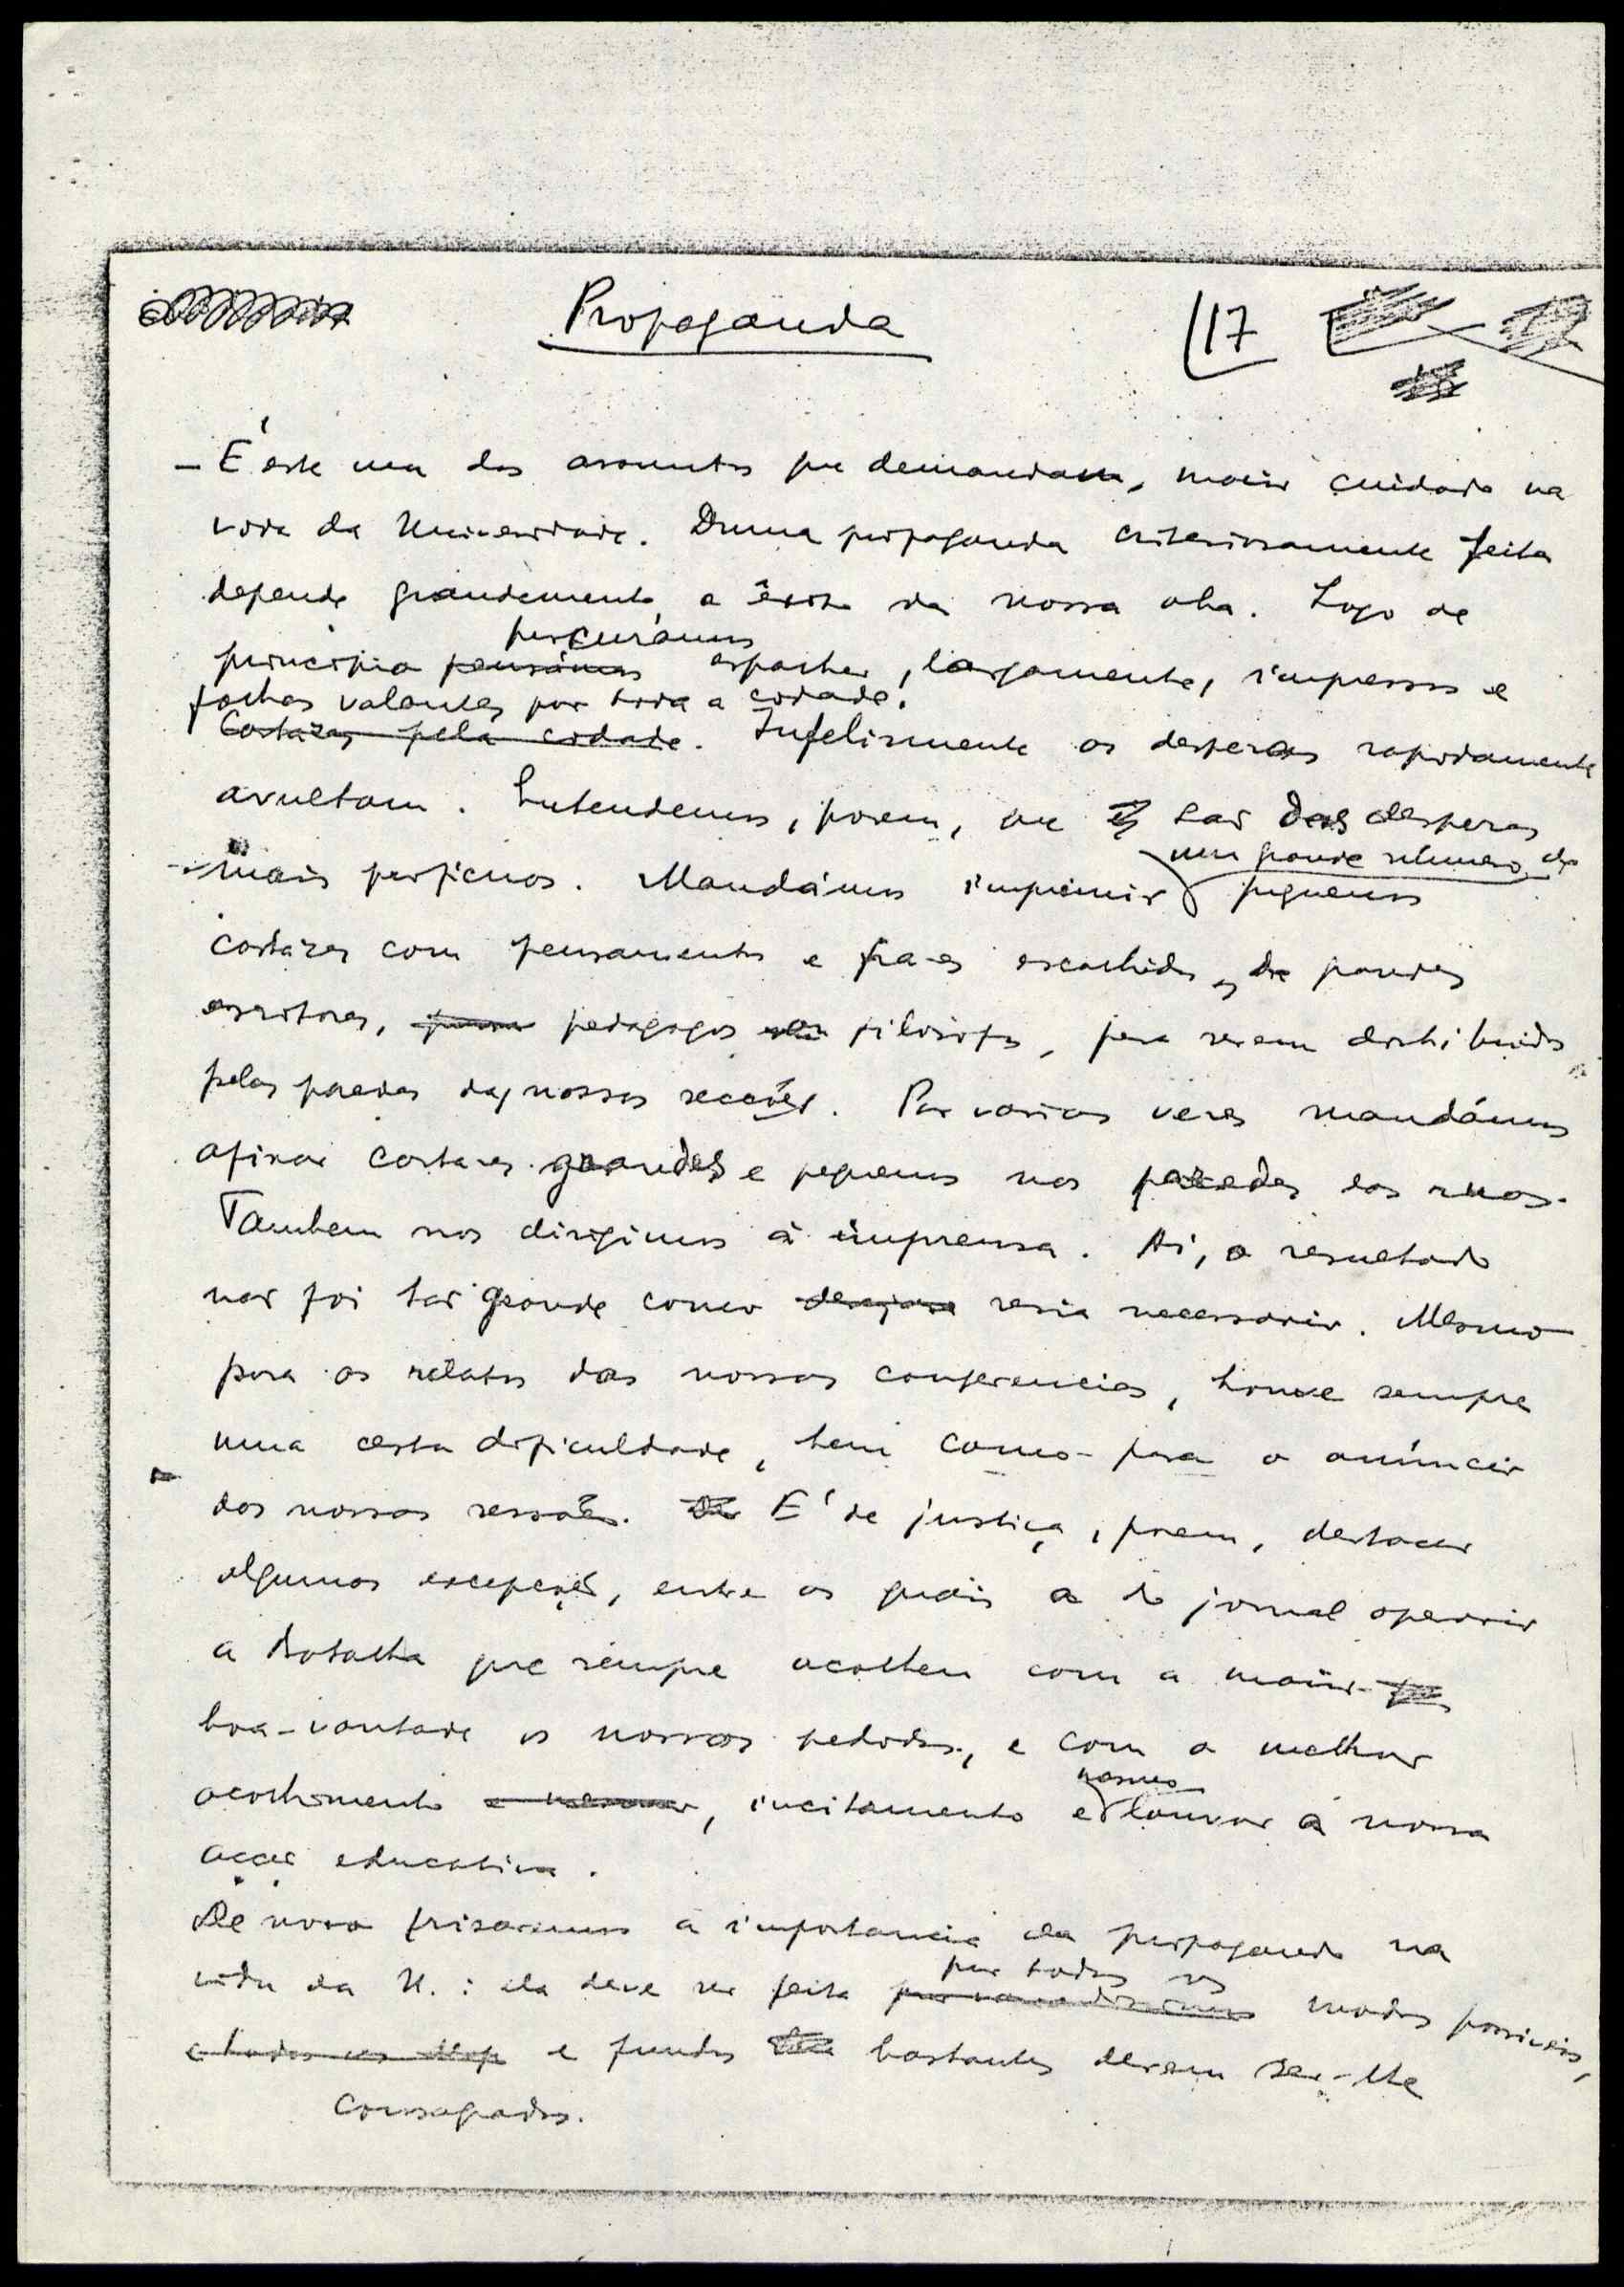 Propaganda
17
- É este um dos assuntos que demandam, maior cuidado na
vida da Universidade. Duma propaganda criteriosamente feita
depende grandemente o êxito da nossa obra. Logo de
procurámos
principio pensámos espalhar, largamente, impressos e
folhas volantes por toda a cidade.
Cartazes pela cidade. Infelizmente as despezas rapidamente
avultam. Entendemos, porem, que são das despezas
um grande numero de
mais proficuas. Mandámos imprimir pequenos
cartazes com pensamentos e frases escolhidas, de grandes
escritores, pedagogos filosofos, para serem distribuidos
pelas paredes das nossas secções. Por varias vezes mandámos
afixar cartazes grandes e pequenos nas paredes das ruas.
Tambem nos dirigimos á imprensa. Aí, o resultado
não foi tão grande como desejava seria necessario. Mesmo
para os relatos das nossas conferencias, houve sempre
uma certa dificuldade, bem como para o anúncio
das nossas sessões. É de justiça, porem, destacar
algumas excepções, entre as quais a do jornal operario
a Batalha que sempre acolheu com a maior
boa-vontade os nossos pedidos, e com o melhor
mesmo
acolhimento, incitamento e louvor á nossa
acção educativa.
De novo frisaremos a importancia da propaganda na
por todos os
vida da U.: ela deve ser feita modos possiveis,
e todos os e fundos bastantes devem ser-lhe
consagrados.